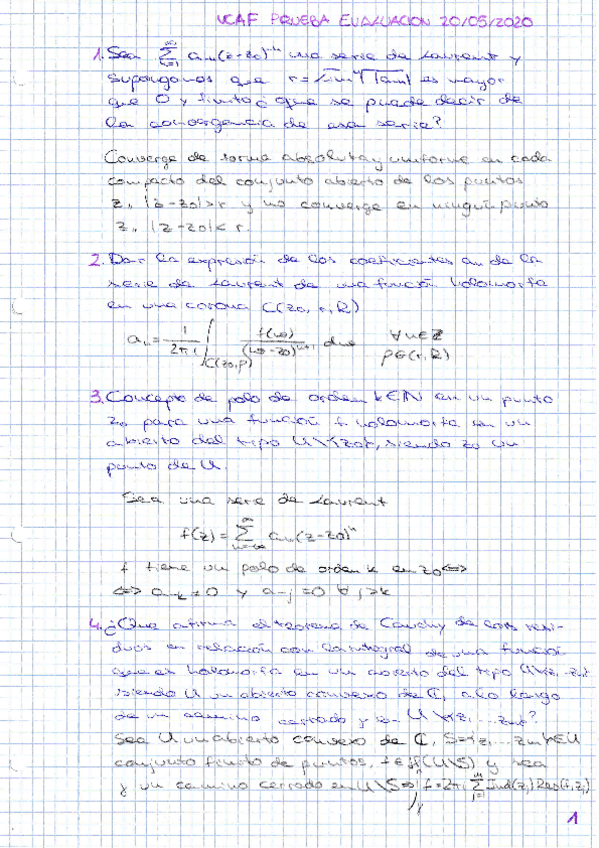 UCAF PRUEBA EVALUACION 20/05/2020
1. Sea ∞∑n=1 a-n(z-z0)^-n una serie de Laurent y
supongamos que r = lim ⁿ√|a-n| es mayor
que 0 y finito ¿ que se puede decir de
la convergencia de esa serie?
Converge de forma absoluta y uniforme en cada
compacto del conjunto abierto de los puntos
z, |z-z0|>r y no converge en ningún punto
z, |z-z0|< r.
2. Dar la expresión de los coeficientes an de la
serie de Laurent de una función holomorfa
en una corona C(z0, r, R)
an = 1/2πi ∫C(z0,ρ) f(w)/(w-z0)^n+1 dw ∀n∈Z ρ∈(r,R)
3. Concepto de polo de orden k∈N en un punto
z0 para una función f holomorfa en un
abierto del tipo U\{z0}, siendo z0 un
punto de U.
Sea una serie de Laurent
f(z) = ∞∑n=-∞ an(z-z0)^n
f tiene un polo de orden k en z0 <=>
<=> a-k≠0 y a-j=0 ∀ j>k
4. ¿Que afirma el teorema de Cauchy de los resi-
duos en relación con la integral de una función
que es holomorfa en un abierto del tipo U\{z1 ... zm}
siendo U un abierto convexo de C, a lo largo
de un camino cerrado γ en U\{z1 ... zm}?
Sea U un abierto convexo de C, S={z1, ... zm}∈U
conjunto finito de puntos, f∈H(U\S) y sea
γ un camino cerrado en U\S => ∫γ f = 2πi m∑j=1 Ind(zj) Res(f, zj)
1